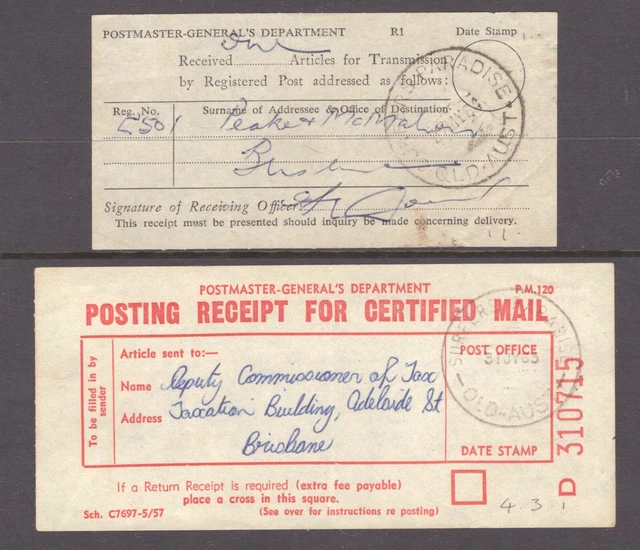 POSTMASTER-GENERAL'S DEPARTMENT R1 Date Stamp
Received one Articles for Transmission
by Registered Post addressed as follows:
Reg. No. Surname of Addressee & Office of Destination
5501 Peake & McMahon
Signature of Receiving Officer
This receipt must be presented should inquiry be made concerning delivery.
PARADISE
QLD-AUST
POSTMASTER-GENERAL'S DEPARTMENT P.M.120
POSTING RECEIPT FOR CERTIFIED MAIL
To be filled in by sender
Article sent to:—
Name Deputy Commissioner of Tax
Address Taxation Building, Adelaide St
Brisbane
POST OFFICE
SURFERS PARADISE
QLD-AUST
DATE STAMP
D 310715
If a Return Receipt is required (extra fee payable)
place a cross in this square.
Sch. C7697-5/57 (See over for instructions re posting)
4.3.1